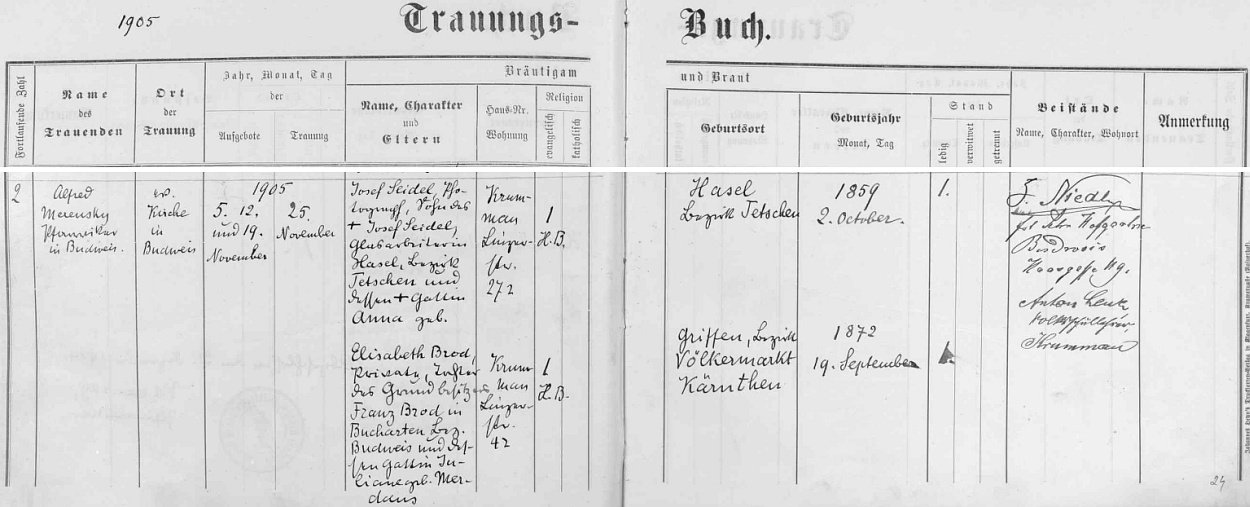 1905
Trauungs-
Buch.
Fortlaufende Zahl
Name
des
Trauenden
Ort
der
Trauung
Jahr, Monat, Tag
der
Aufgebote
Trauung
Bräutigam
Name, Charakter
und
Eltern
Haus-Nr.
Wohnung
Religion
evangelisch
katholisch
und Braut
Geburtsort
Geburtsjahr
Monat, Tag
Stand
ledig
verwitwet
getrennt
Beistände
Name, Charakter, Wohnort
Anmerkung
2
Alfred
Merensky
Pfarrvikar
in Budweis.
ev.
Kirche
in
Budweis
1905
5. 12.
und 19.
November
25.
November
Josef Seidel, Pho-
tograph, Sohn des
+ Josef Seidel,
Glasarbeiter in
Hasel, Bezirk
Tetschen und
dessen + Gattin
Anna geb.
Krum-
man
Linzer-
str.
272
1
H.B.
Hasel
Bezirk Tetschen
1859
2. October.
1.
F. Niedl
Budweis
Anton Lenz
Volksschullehrer
Krummau
Elisabeth Brod,
Private, Tochter
des Grundbesitzers
Franz Brod in
Bucharten Bez.
Budweis und des-
sen Gattin Ju-
liane geb. Mer-
daus
Krum-
man
Linzer-
str.
42
1
H.B.
Griffen, Bezirk
Völkermarkt
Kärnthen
1872
19. September
1.
24